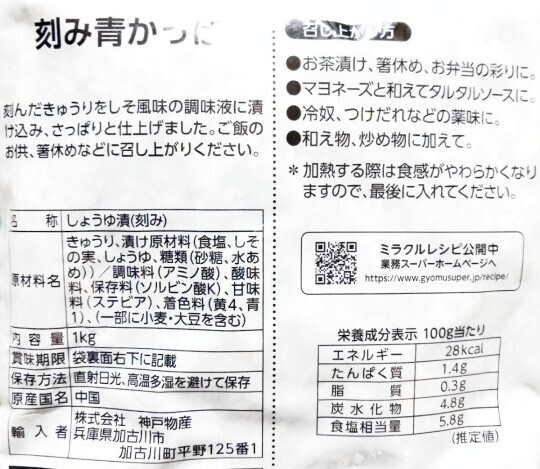 刻み青かっぱ
刻んだきゅうりをしそ風味の調味液に漬
け込み、さっぱりと仕上げました。ご飯の
お供、箸休めなどに召し上がりください。
名 称 しょうゆ漬(刻み)
原材料名 きゅうり、漬け原材料(食塩、しそ
の実、しょうゆ、糖類(砂糖、水あ
め))/調味料(アミノ酸)、酸味
料、保存料(ソルビン酸K)、甘味
料(ステビア)、着色料(黄4、青
1)、(一部に小麦・大豆を含む)
内容量 1kg
賞味期限 袋裏面右下に記載
保存方法 直射日光、高温多湿を避けて保存
原産国名 中国
輸入者 株式会社 神戸物産
兵庫県加古川市
加古川町平野125番1
召し上がり方
●お茶漬け、箸休め、お弁当の彩りに。
●マヨネーズと和えてタルタルソースに。
●冷奴、つけだれなどの薬味に。
●和え物、炒め物に加えて。
*加熱する際は食感がやわらかくなり
ますので、最後に入れてください。
ミラクルレシピ公開中
業務スーパーホームページへ
https://www.gyomusuper.jp/recipe/
栄養成分表示 100g当たり
エネルギー 28kcal
たんぱく質 1.4g
脂質 0.3g
炭水化物 4.8g
食塩相当量 5.8g
(推定値)